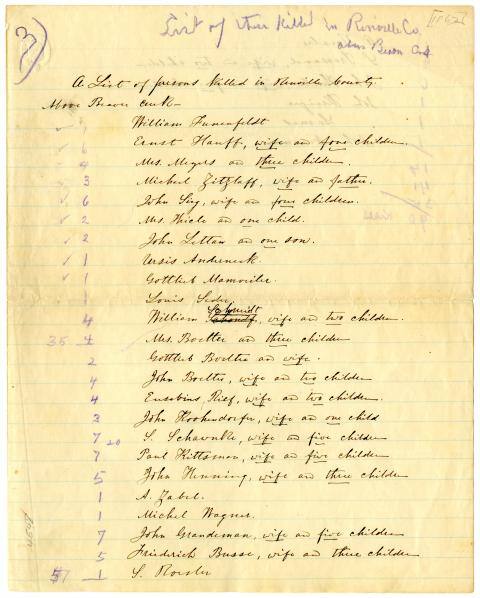 3)
List of those Killed in Renville Co.
above Beaver Creek
A List of persons Killed in Renville County.
Above Beaver creek—
William
6 Ernst Hauff, wife an four children
4 Mrs. Meyers an three children.
3 Michel Zitzlaff, wife an father.
6 John Sieg, wife an four children.
2 Mrs. Thiele an one child.
2 John Lettau an one son.
1 Versis Anderneck.
1 Gottlieb Mamwiler.
1 Louis Seder
Schmidt
4 William wife an two children.
35 4 Mrs. Boelter an three children
2 Gottlieb Boelter an wife.
4 John Boelter, wife an two children
4 Eusebius Reif, wife an two children.
3 John Kochendorfer, wife an one child
7 20 S. Schawnke, wife an five children
7 Paul Kittsman, wife an five children
5 John Henning, wife an three children
1 A. Zabel.
1 Michel Wagner.
7 John Grandeman, wife an five children
5 Friederich Busse, wife an three children
1 S. Roesler